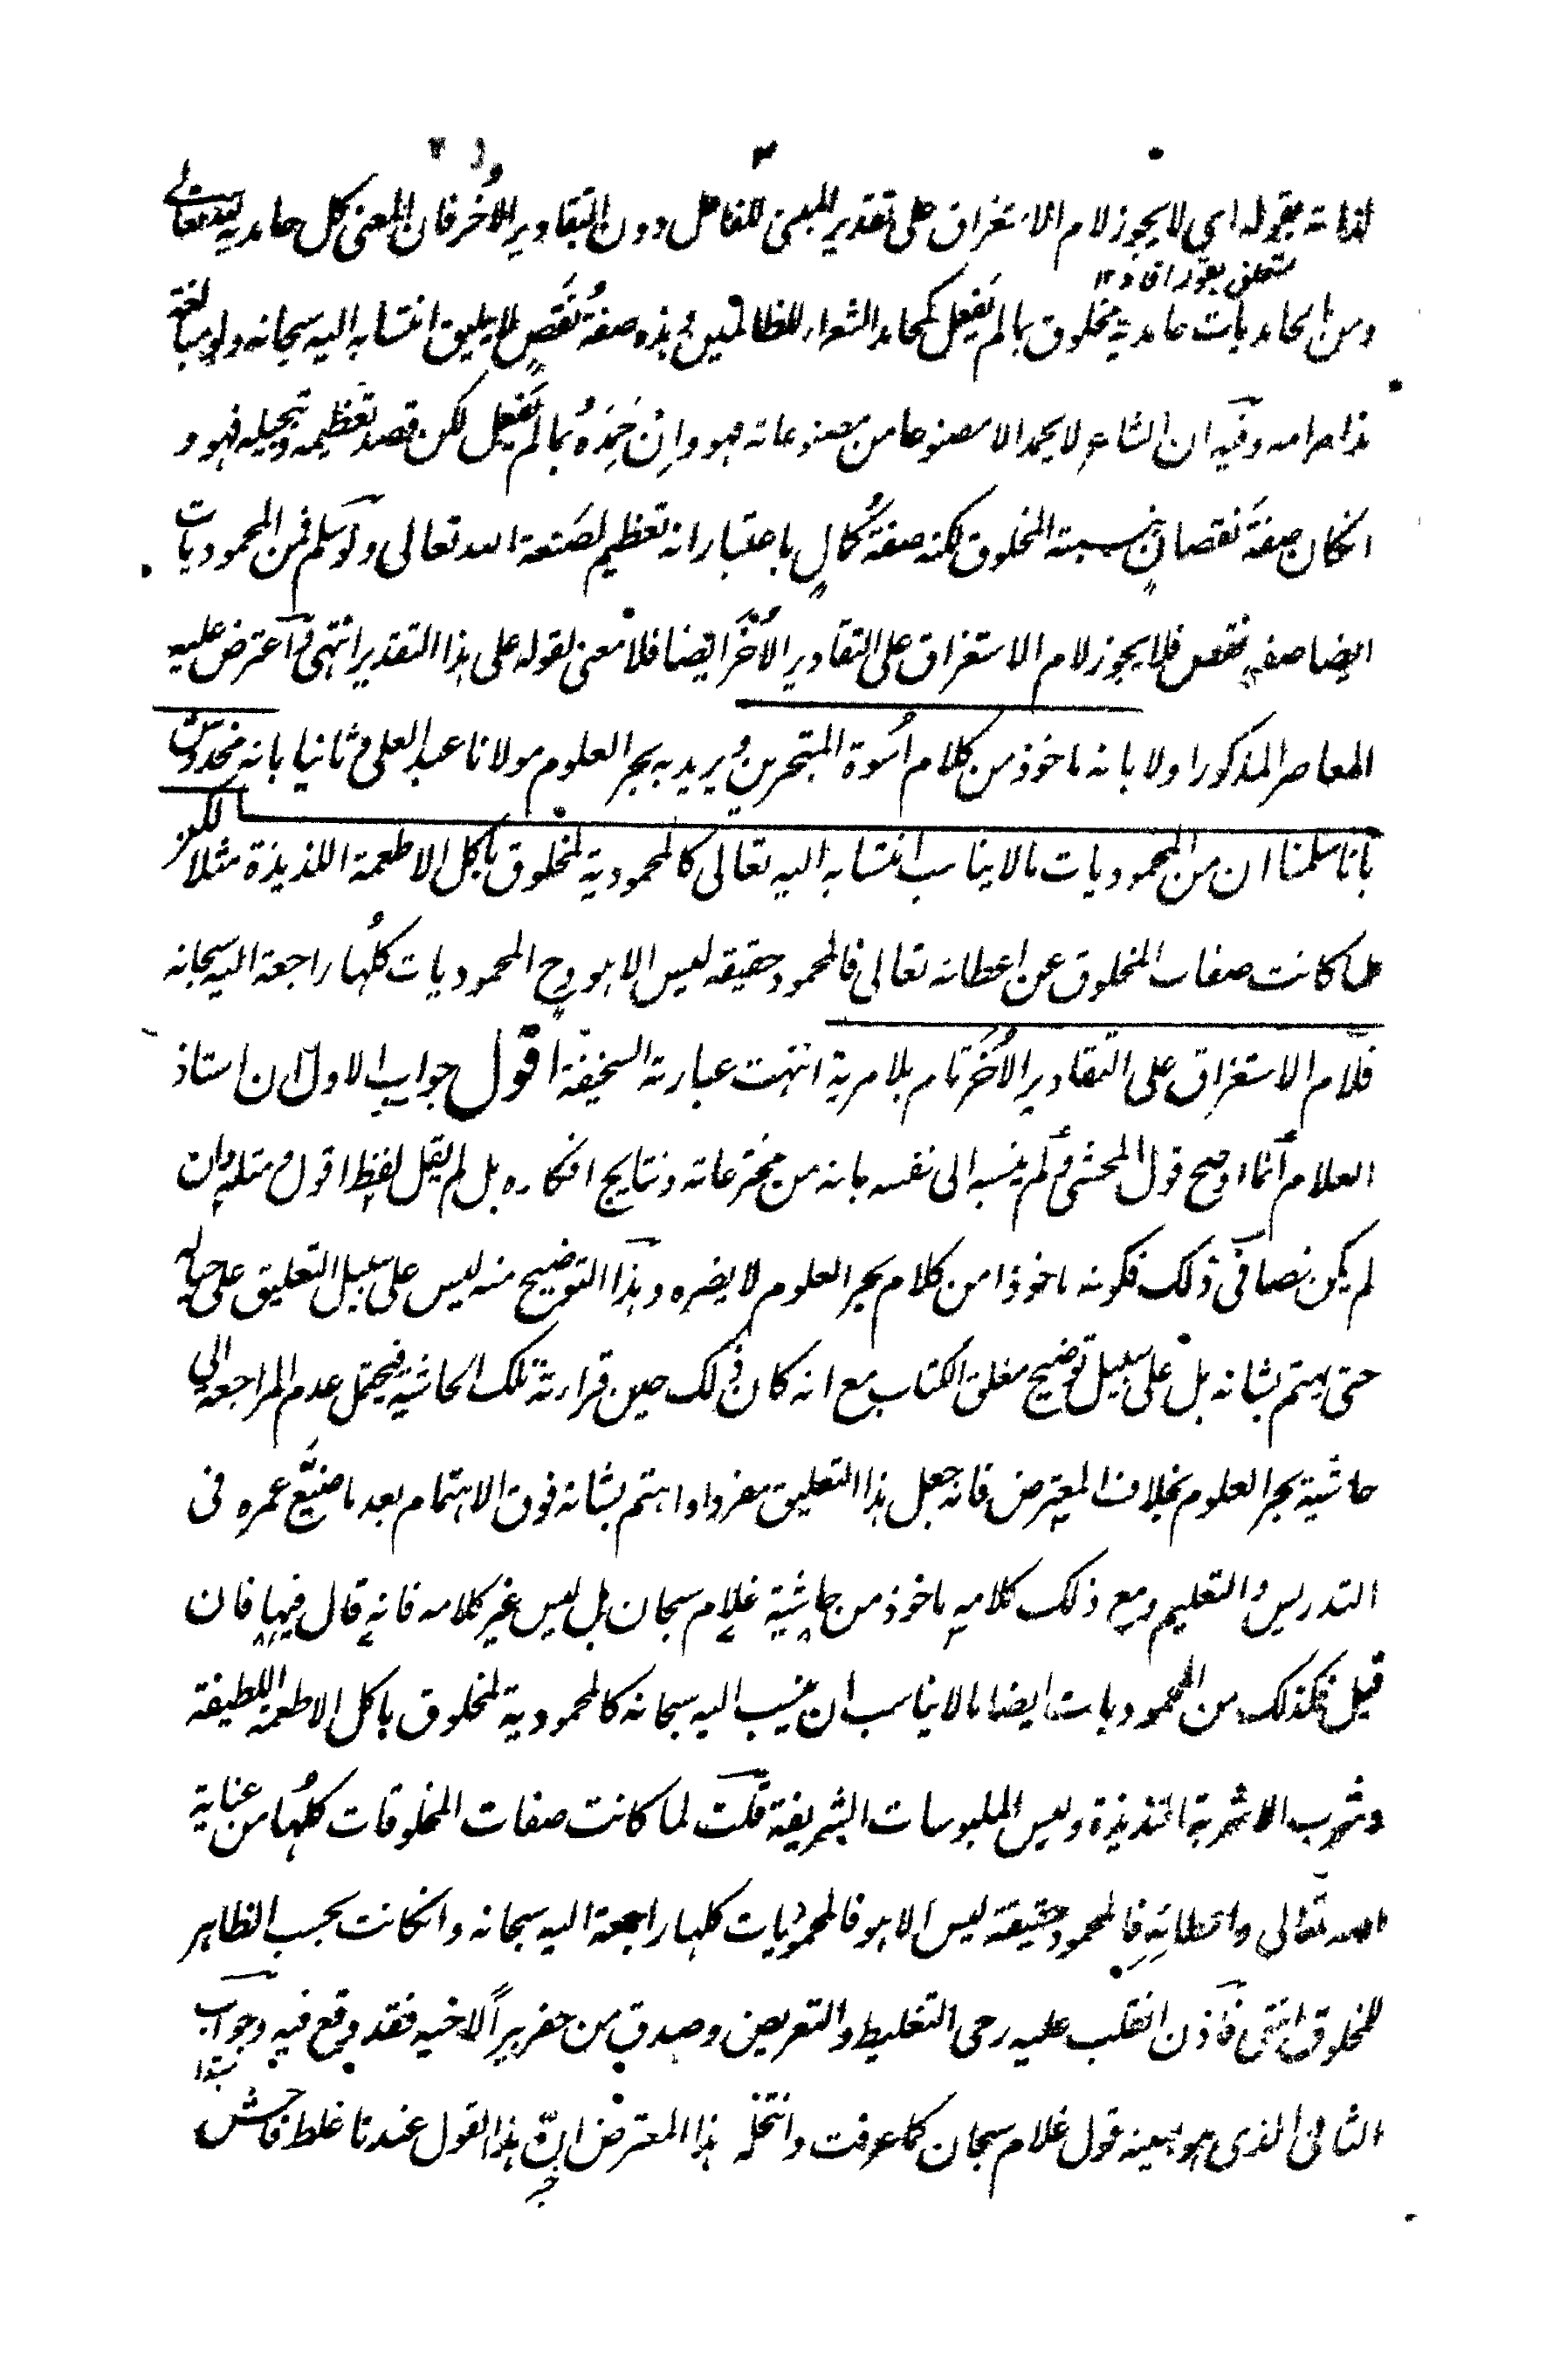 لذاته بقوله اي لا يجوز لام الاستغراق على تقدير المبنى للفاعل دون التقادير الاُخر فان المعنى كل حامدية لله تعالى
متعلق بقوله افاد ١٢
ومن الحامديات حامدية مخلوق بما لم يَفعل كمحامد الشعراء للظالمين وهذه صفةُ نَقصٍ لا يليق انتسابه اليه سبحانه ولو مبالغة
هذا مرامه وفيه ان الشاعر لا يحمد الا مصنوعا من مصنوعاته فهو وان حَمِدَهُ بما لم يَفعل لكن قصد تعظيمه وتبجيله فهو و
انكان صفةَ نقصانٍ بنسبته المخلوق لكنه صفةُ كمالٍ باعتبار انه تعظيم لصَنعة الله تعالى ولو سلم فمن المحموديات
ايضا صفة نقص فلا يجوز لام الاستغراق على التقادير الاُخَر ايضا فلا معنى لقوله على هذا التقدير انتهى واعترض عليه
المعاصر المذكور اولا بانه ماخوذ من كلام اُسوة المتبحرين ويريد به بحر العلوم مولانا عبد العلى وثانيا بانه مخدوش
بانا سلمنا ان من المحموديات ما لا يناسب انتسابه اليه تعالى كالمحمودية لمخلوق باكل الاطعمة اللذيذة مثلا لكن
لما كانت صفات المخلوق عن اعطائه تعالى فالمحمود حقيقة ليس الا هو وح المحموديات كلُها راجعة اليه سبحانه
فلام الاستغراق على التقادير الاُخَر تام بلا مرية انتهت عبارته السخيفة اقول جواب الاول ان استاذ
العلام انما اوضح قول المحشي ولم ينسبه الى نفسه بانه من مخترعاته ونتايج افكاره بل لم يقل لفظ اقول ومثله وان
لم يكن نصا في ذلك فكونه ماخوذا من كلام بحر العلوم لا يضره وهذا التوضيح منه ليس على سبيل التعليق على حياله
حتى يهتم بشانه بل على سبيل توضيح مغلق الكتاب مع انه كان ذلك حين قراءته تلك الحاشية فيحتمل عدم المراجعة الى
حاشية بحر العلوم بخلاف المعترض فانه جعل هذا التعليق مفردا واهتم بشانه فوق الاهتمام بعد ما ضيَّع عمره فى
التدريس والتعليم ومع ذلك كلامه ماخوذ من حاشية غلام سبحان بل ليس غير كلامه فانه قال فيها فان
قيل فكذلك من المحموديات ايضا ما لا يناسب ان ينسب اليه سبحانه كالمحمودية لمخلوق باكل الاطعمة اللطيفة
وشرب الاشربة اللذيذة ولبس الملبوسات الشريفة قلت لما كانت صفات المخلوقات كلُها من عناية
الله تعالى واعطائه فالمحمود حقيقة ليس الا هو فالمحموديات كلها راجعة اليه سبحانه وانكانت بحسب الظاهر
للمخلوق انتهى فاذن انقلب عليه رحى التغليط والتعريض وصدق من حفر بيراً لاخيه فقد وقع فيه وجواب
مبتدا
الثانى الذى هو بعينه قول غلام سبحان كما عرفت وانتحله هذا المعترض انّ هذا القول عندنا غلط فاحش
خبر